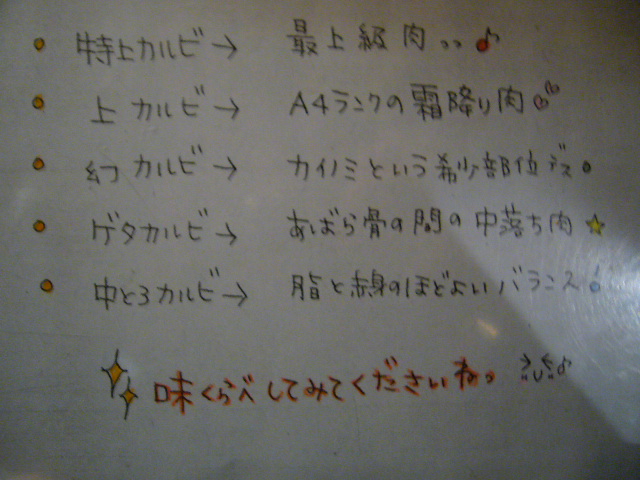 特上カルビ→ 最上級肉…♪
上カルビ→ A4ランクの霜降り肉♡
幻カルビ→ カイノミという希少部位デス。
ゲタカルビ→ あばら骨の間の中落ち肉☆
中とろカルビ→ 脂と赤身のほどよいバランス♪
味くらべしてみてくださいね。